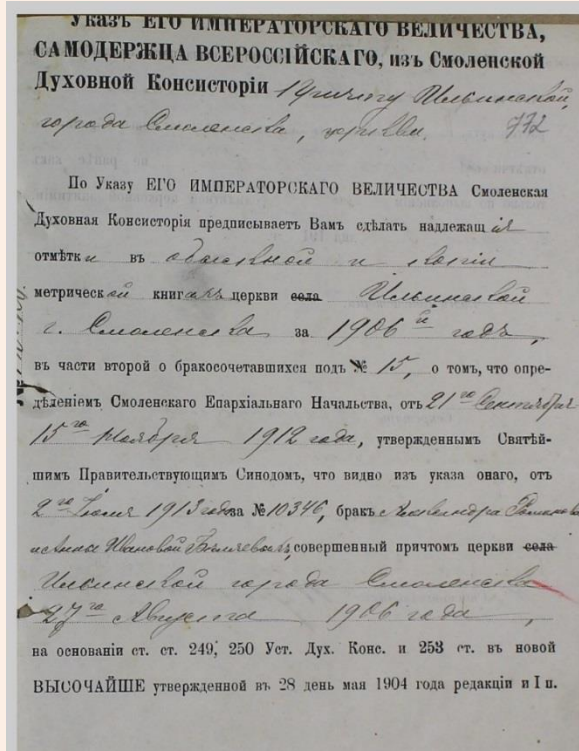 Указъ ЕГО ИМПЕРАТОРСКАГО ВЕЛИЧЕСТВА,
САМОДЕРЖЦА ВСЕРОССІЙСКАГО, изъ Смоленской
Духовной Консисторіи Причту Ильинской,
города Смоленска, церкви. 772
По Указу ЕГО ИМПЕРАТОРСКАГО ВЕЛИЧЕСТВА Смоленская
Духовная Консисторія предписываетъ Вамъ сдѣлать надлежащія
отмѣтки въ обыскной и
метрической книгахъ церкви села Ильинской
г. Смоленска за 1906 годъ,
въ части второй о бракосочетавшихся подъ № 15, о томъ, что опре-
дѣленіемъ Смоленскаго Епархіальнаго Начальства, отъ 21го Сентября
15го Ноября 1912 года, утвержденнымъ Святѣй-
шимъ Правительствующимъ Синодомъ, что видно изъ указа онаго, отъ
2го Іюля 1913 года за № 10346, бракъ Александра
и Анны Ивановой совершенный причтомъ церкви села
Ильинской города Смоленска
27го Августа 1906 года,
на основаніи ст. ст. 249, 250 Уст. Дух. Конс. и 253 ст. въ новой
ВЫСОЧАЙШЕ утвержденной въ 28 день мая 1904 года редакціи и I п.